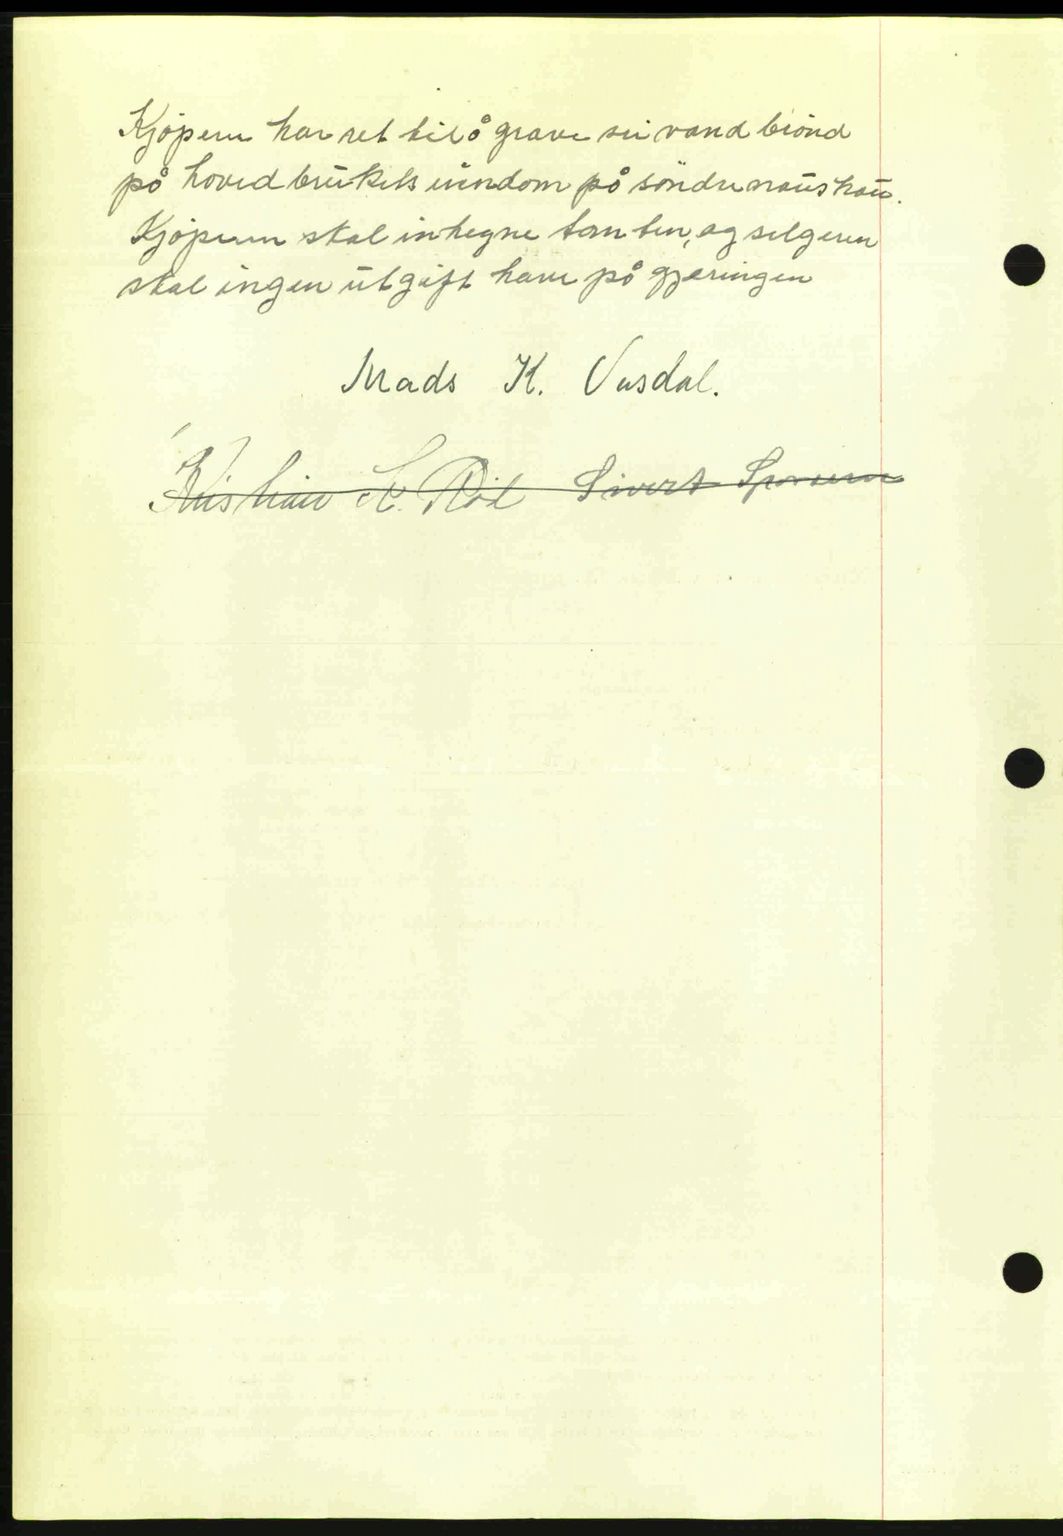 Kjøperen har ret til å grave sin vand brønd
på hovedbrukets eiendom på søndre naushau.
Kjøperen skal inhegne tomten, og selgeren
skal ingen utgift have på gjeringen
Mads K. Vasdal.
Kristian K. Röl Sivert